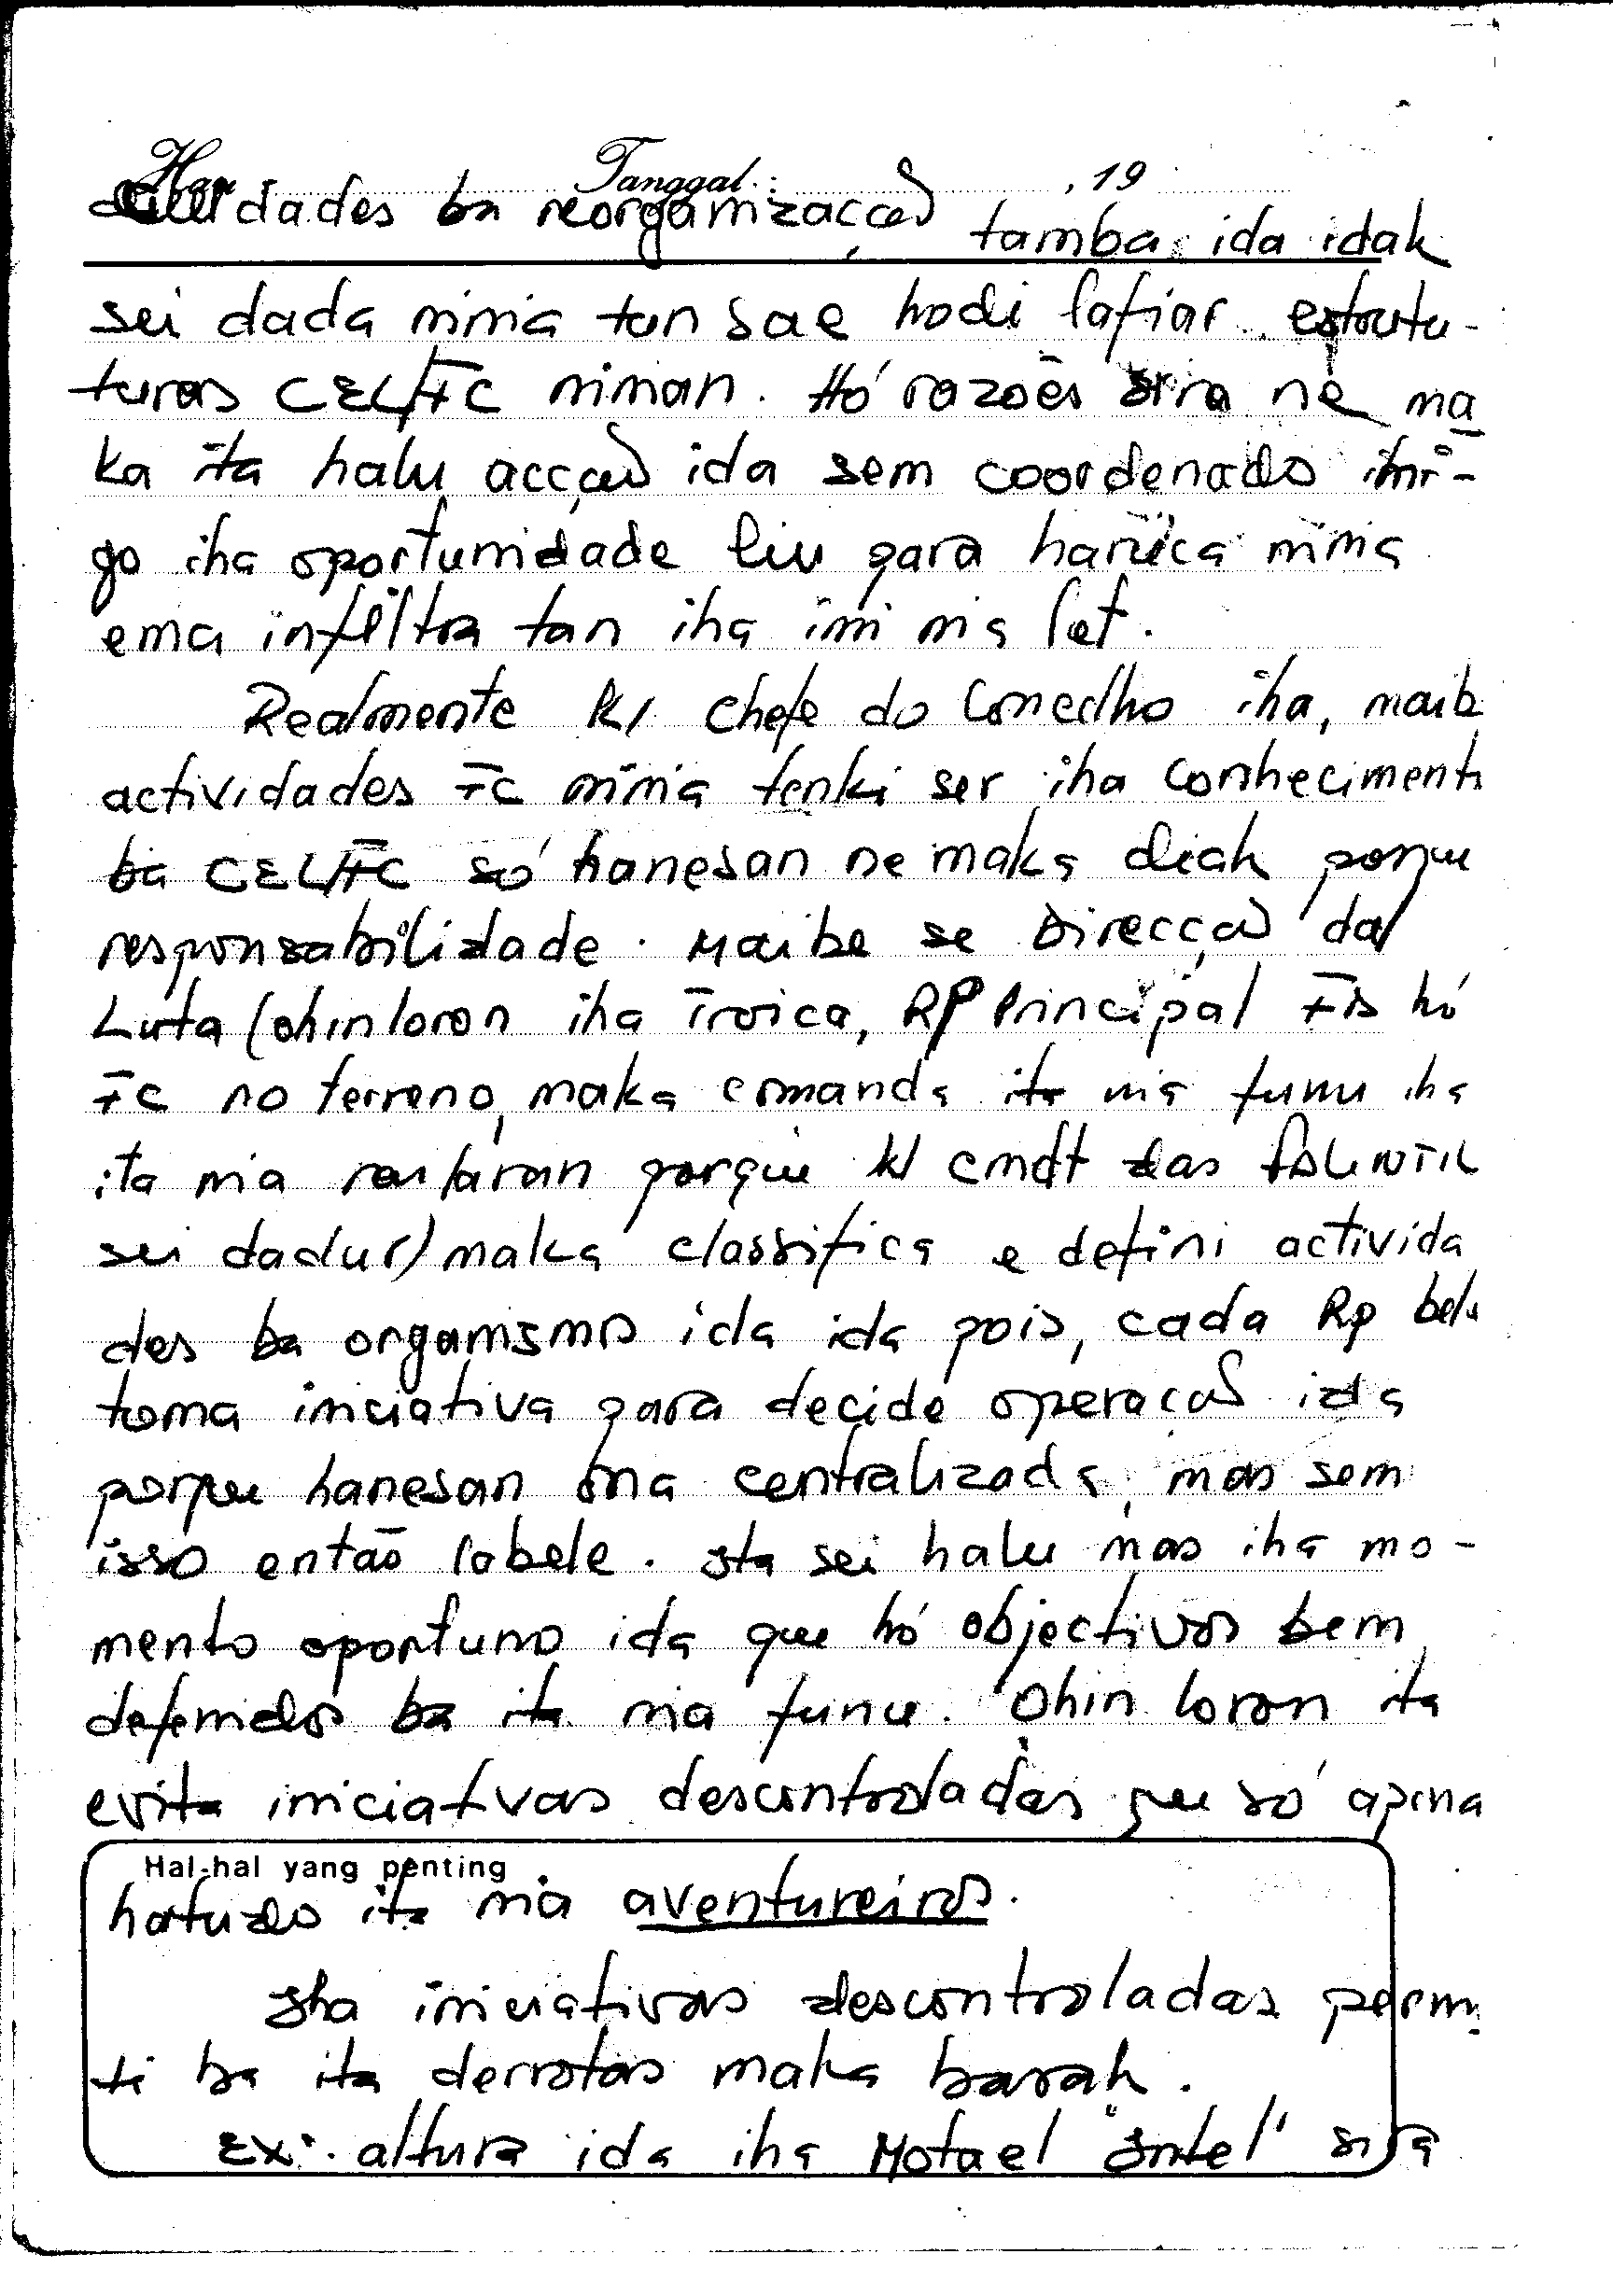 Hari Tanggal : , 19
culdades ba reorganizaçcão tamba, ida idak
sei dada ninia tun sae hodi lafiar estrutu-
turas CEL/FC ninian. Hó razões sira né ma
ka ita halu acçcão ida sem coordenado inimi-
go iha oportunidade liu para harúca ninia
ema infiltra tan iha imi nia let.
Realmente K/ Chefe do Concelho iha, maib
actividades FC ninia tenki ser iha conheciment
ba CEL/FC só hanesan ne maka diak porque
responsabilidade. Maibe se Direcção da
Luta (ohin loron iha Troica, RP Principal FI's hó
FC no terreno, maka comanda ita nia funu iha
ita nia rai laran porque K/ cmdt das FALINTIL
sei dadur) maka classifica e defini activida
des ba organismos ida ida pois, cada Rp bele
toma iniciativa para decide operação ida
porque hanesan ona centralizada, mas sem
isso então labele. Ita sei halu mas iha mo-
mento oportuno ida que hó objectivos bem
defenidos ba ita nia funu. Ohin loron ita
evita iniciativas descontroladas que só apena
Hal-hal yang penting
hatudo ita nia aventureiros.
Iha iniciativas descontroladas permi
ti ba ita derrotas maka barak.
Ex: altura ida iha Motael "Intel" sira